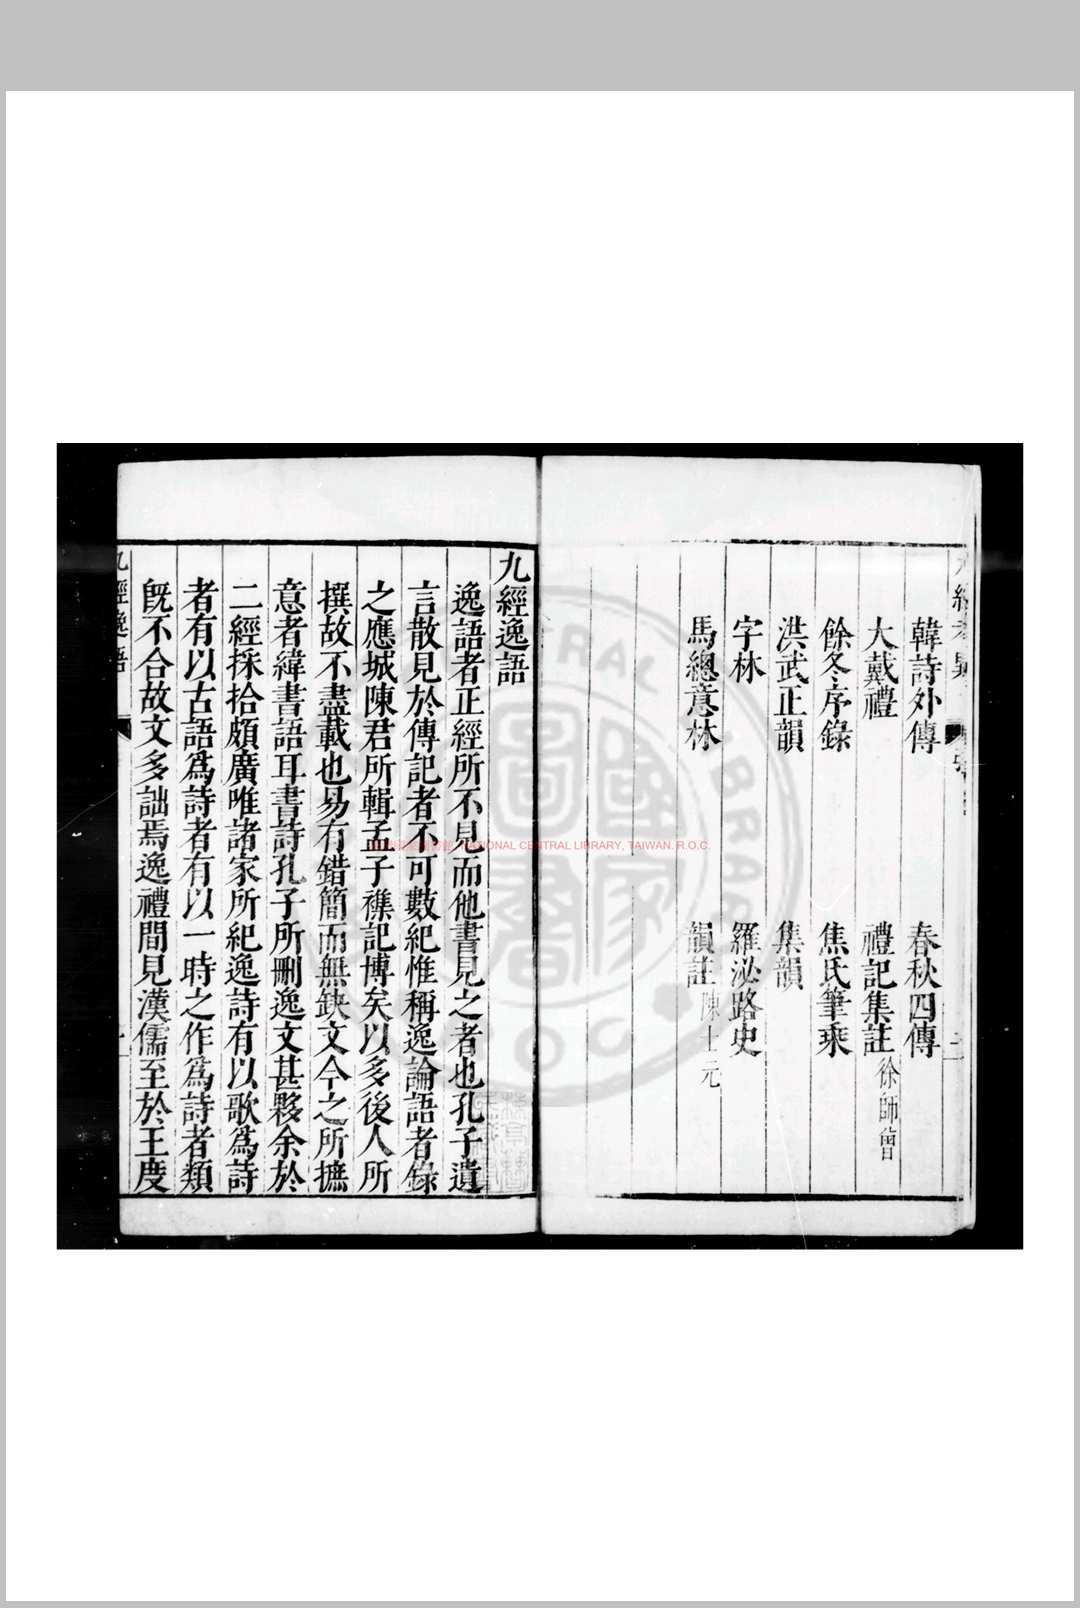 韓詩外傳 春秋四傳
大戴禮 禮記集註徐師曾
餘冬序錄 焦氏筆乘
洪武正韻 集韻
字林 羅泌路史
馬總意林 韻註陳士元
九經逸語
逸語者正經所不見而他書見之者也孔子遺
言散見於傳記者不可數紀惟稱逸論語者錄
之應城陳君所輯孟子襍記博矣以多後人所
撰故不盡載也易有錯簡而無缺文今之所摭
意者緯書語耳書詩孔子所刪逸文甚夥余於
二經採拾頗廣唯諸家所紀逸詩有以歌為詩
者有以古語為詩者有以一時之作為詩者類
旣不合故文多詘焉逸禮間見漢儒至於王度
九經逸語
NATIONAL CENTRAL LIBRARY, TAIWAN, R.O.C.